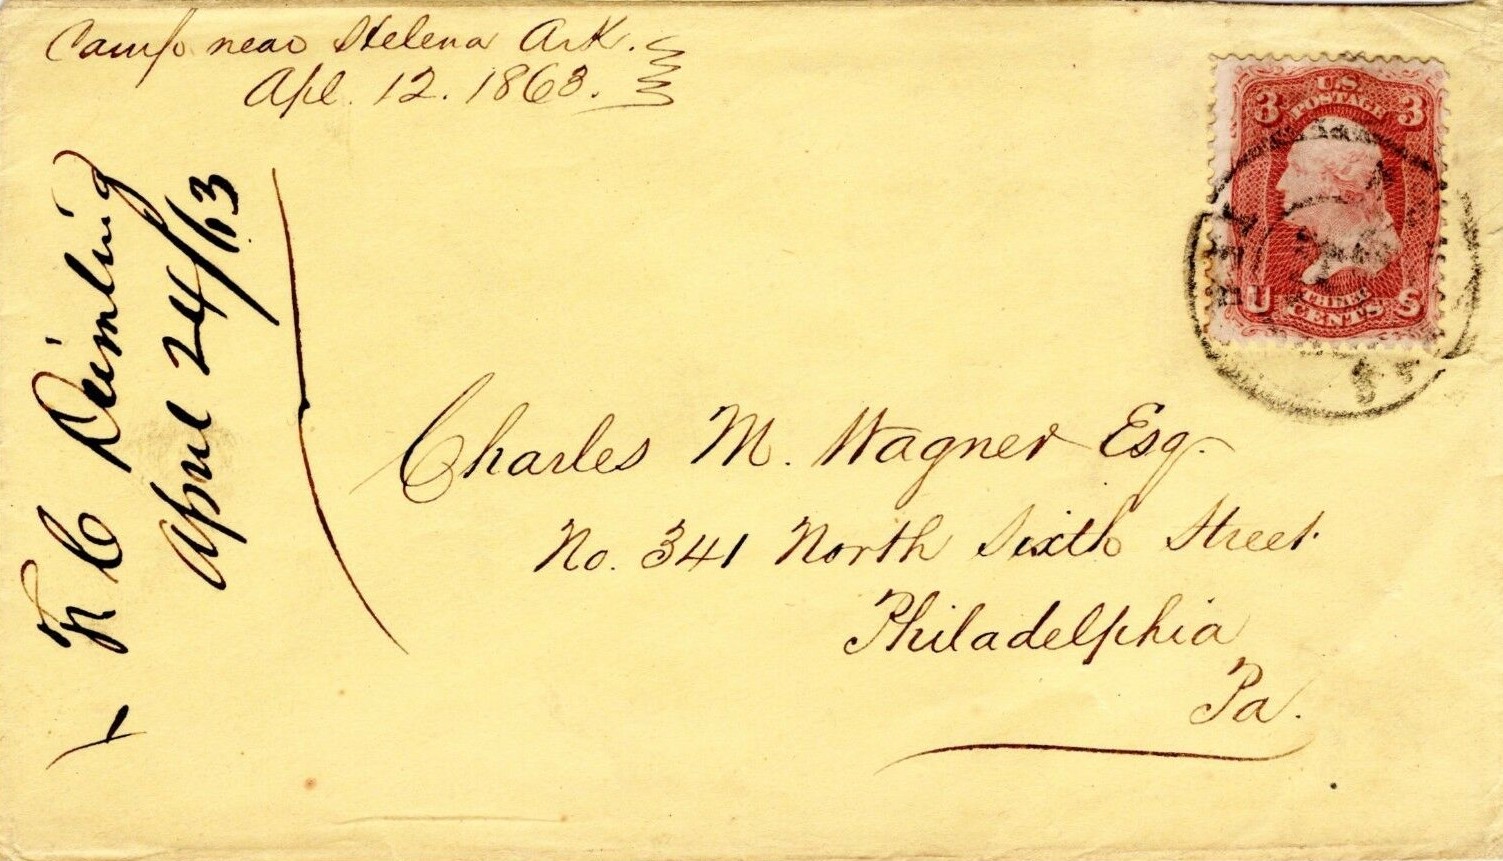 Camp near Helena Ark.
Apl. 12. 1863.
F C Deimling
April 24/63
U.S.
POSTAGE
3 3
U THREE S
CENTS
Charles M. Wagner Esq.
No. 341 North Sixth Street
Philadelphia
Pa.